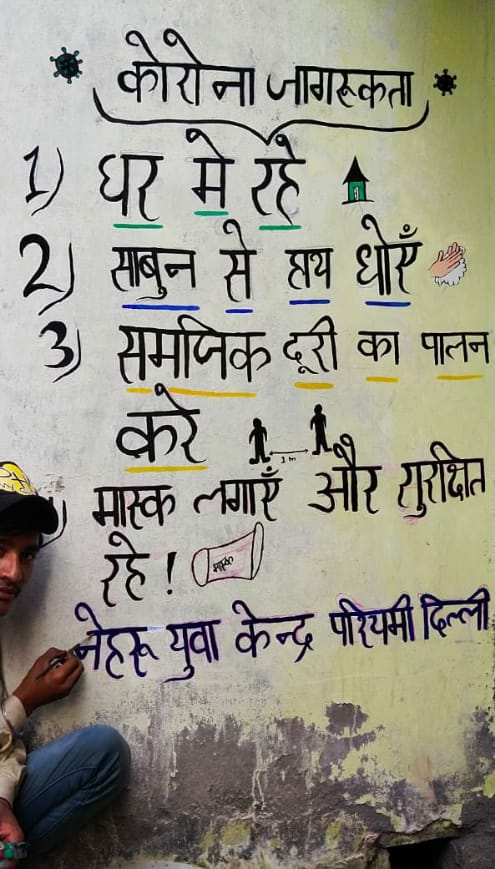 कोरोना जागरूकता
1) घर मे रहे
2) साबुन से हाथ धोएँ
3) समजिक दूरी का पालन
करे
1 m
मास्क लगाएँ और सुरक्षित
रहे !
मास्क
नेहरू युवा केन्द्र परियमी दिल्ली